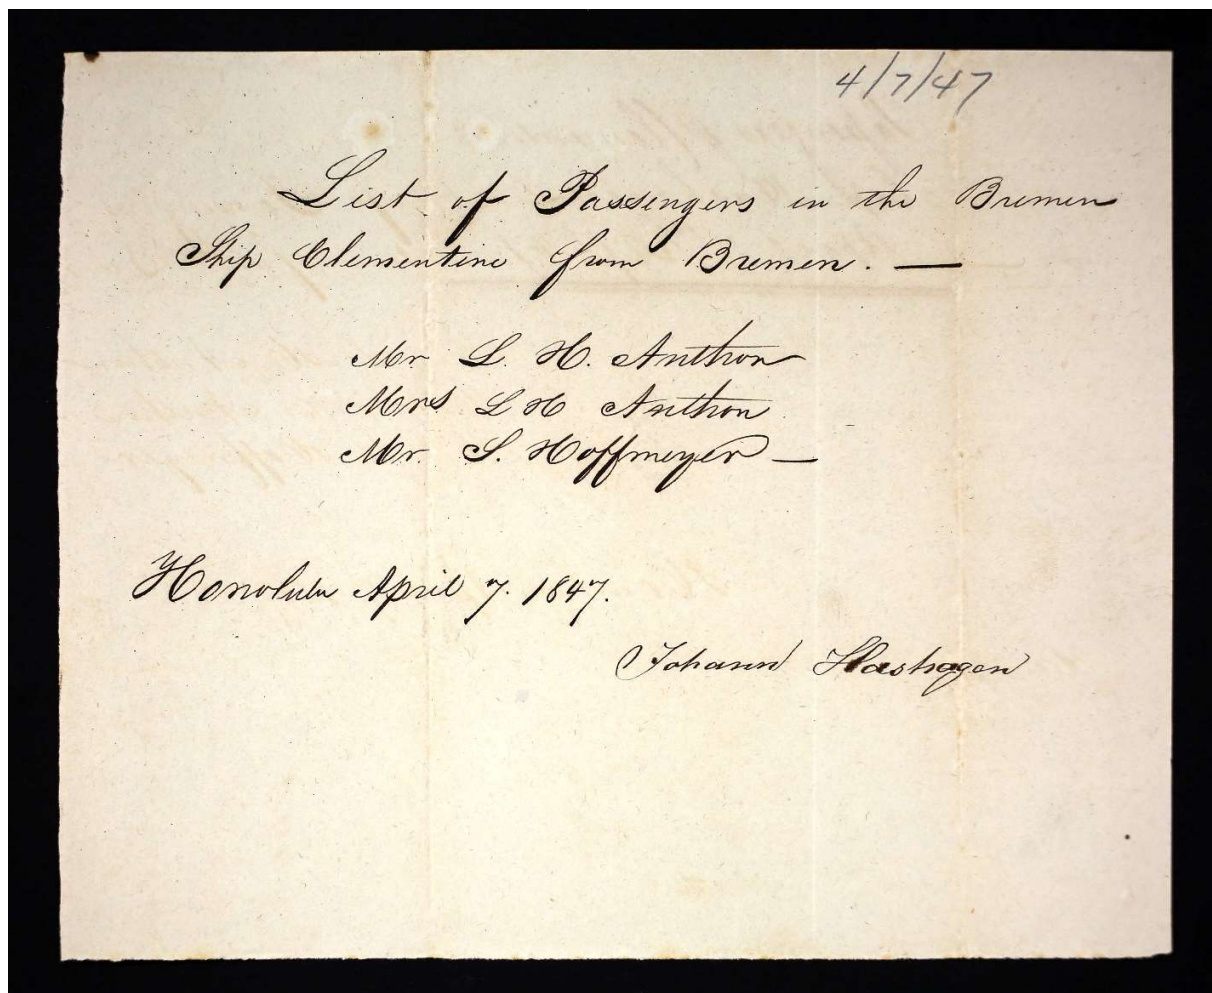 4/7/47
List of Passengers in the Bremen
Ship Clementine from Bremen. —
Mr L. H. Anthon
Mrs L H Anthon
Mr. S. Hoffmeyer —
Honolulu April 7. 1847.
Johann Hashagen